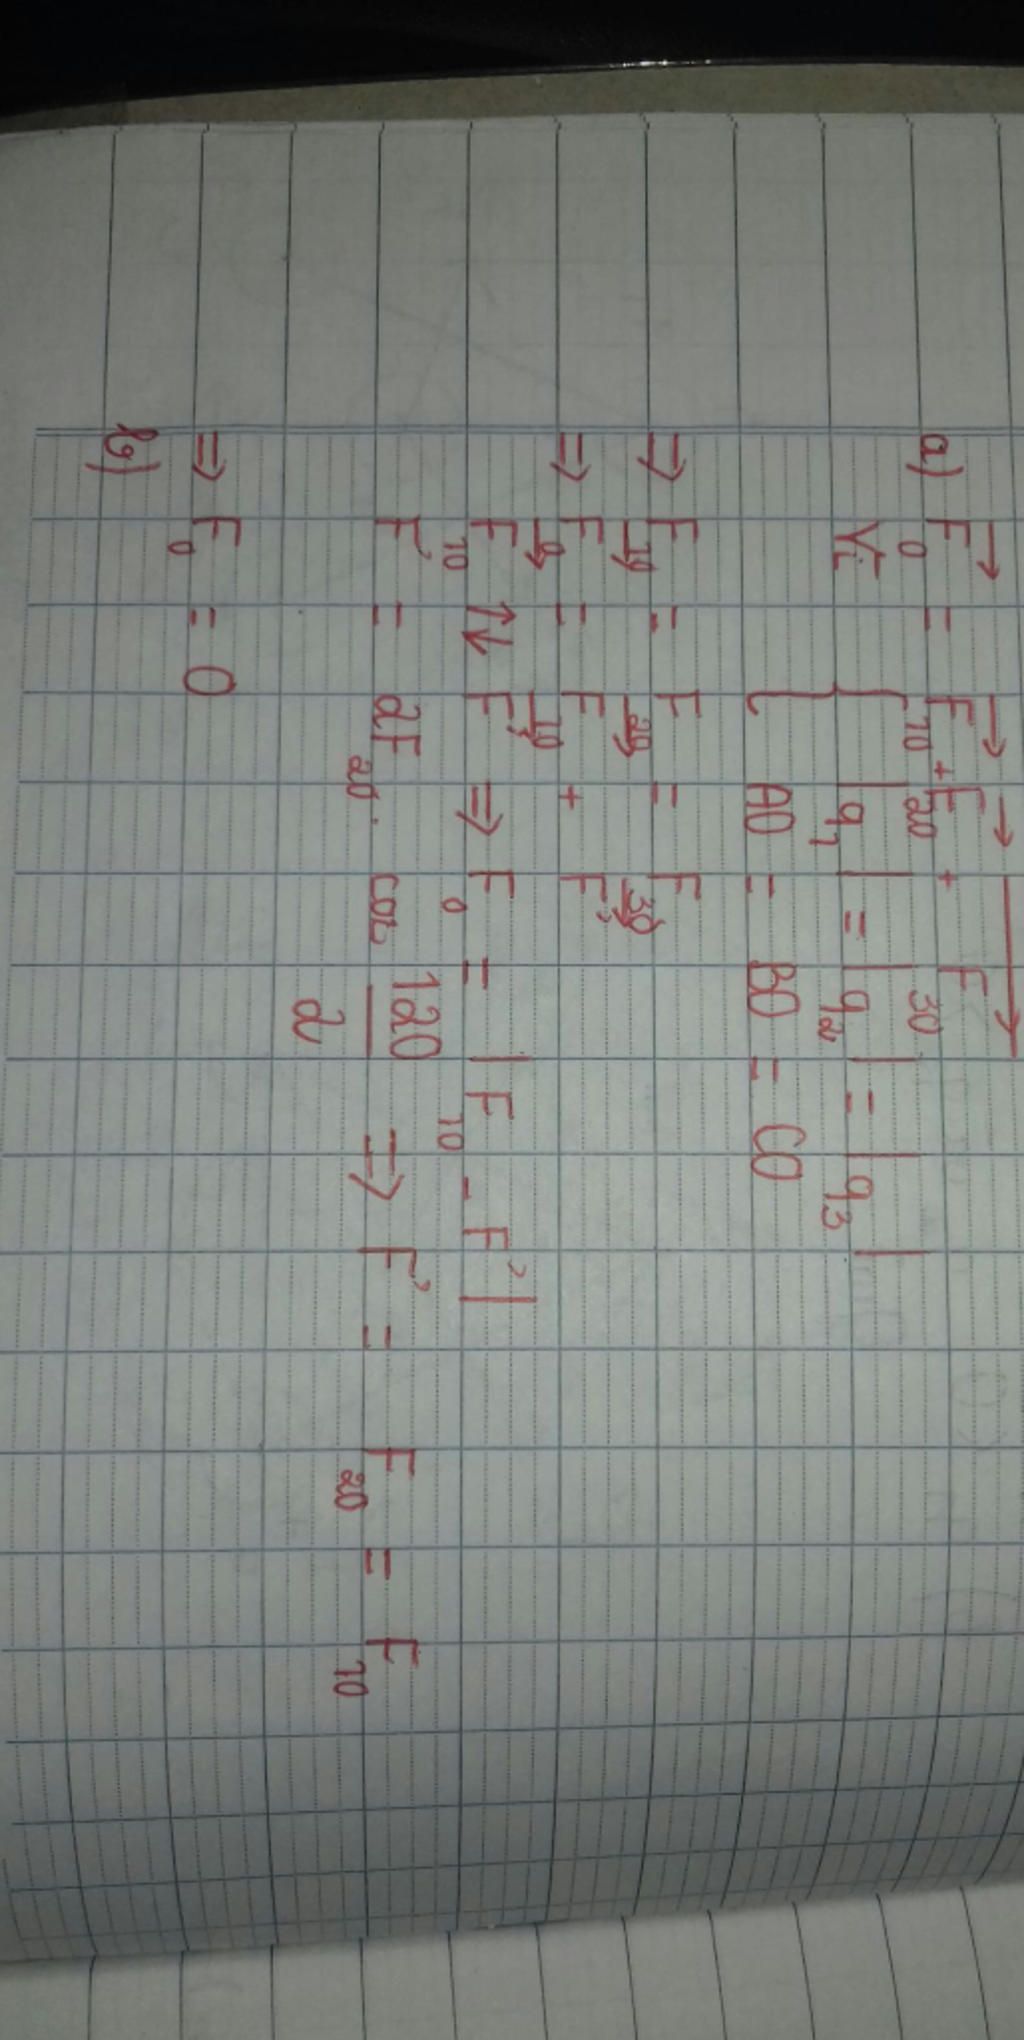 a) F₀→ = F₁₀→ + F₂₀→ + F₃₀→
Vì { |q₁| = |q₂| = |q₃|
AO = BO = CO
=> F₁₀ = F₂₀ = F₃₀
=> F₀→ = F₁₀→ + F'→
F₁₀→ ↑↓ F'→ => F₀ = |F₁₀ - F'|
F' = 2F₂₀ . cos 120/2 => F' = F₂₀ = F₁₀
=> F₀ = 0
b)